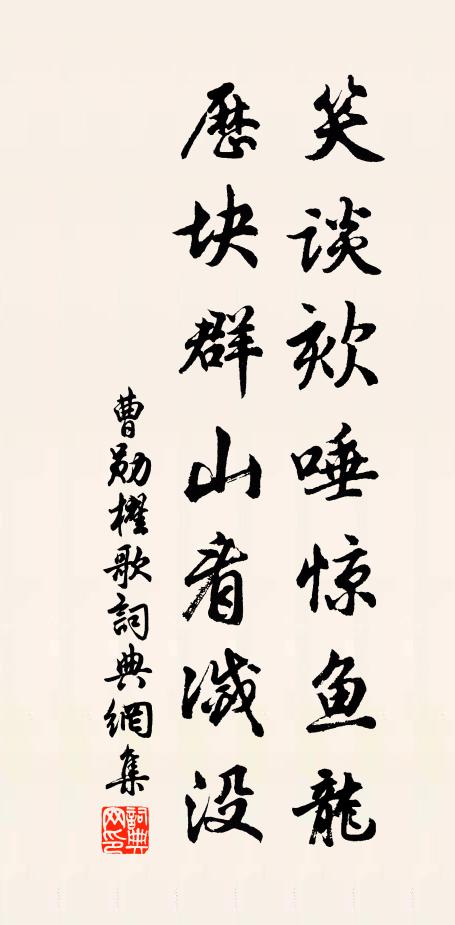 笑谈欬唾惊鱼龍
歷块群山看減没
曹勋櫂歌詞典網集
詞典網印